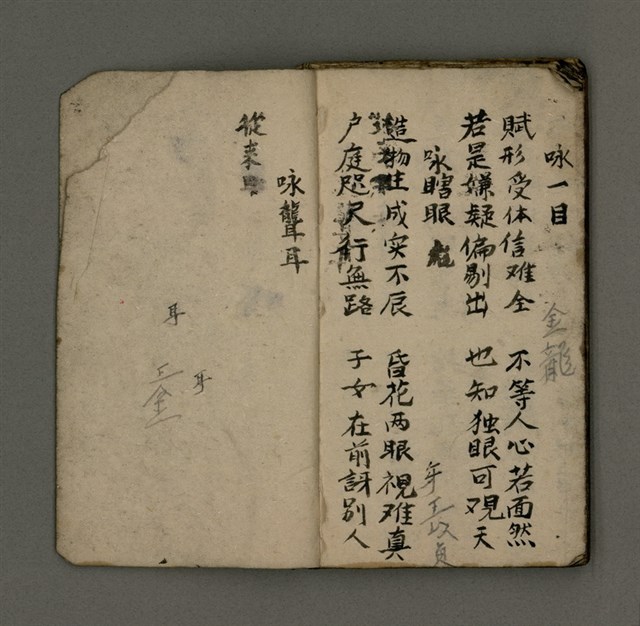 咏一目
賦形受体信难全 不等人心若面然
若是嫌疑偏剔出 也知独眼可观天
咏瞎眼
造物生成实不辰 昏花两眼視难真
户庭咫尺行無路 子女在前訝別人
金龍
年
咏聾耳
從来
耳
耳